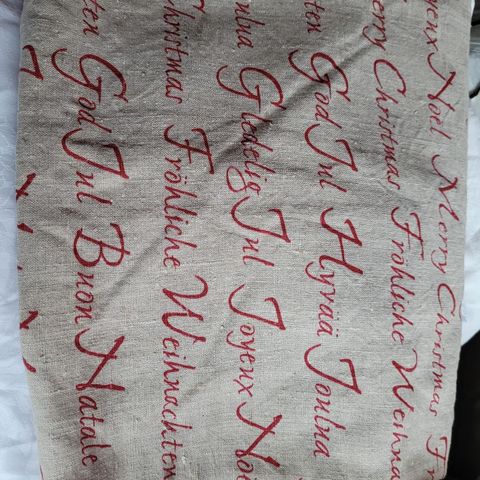 Joyeux Noël Merry Christmas Fr
Merry Christmas Fröhliche Weihna
ten God Jul Hyvää Joulua
Glædelig Jul Joyeux Noë
Christmas Fröhliche Weihnachten
ten God Jul Buon Natale